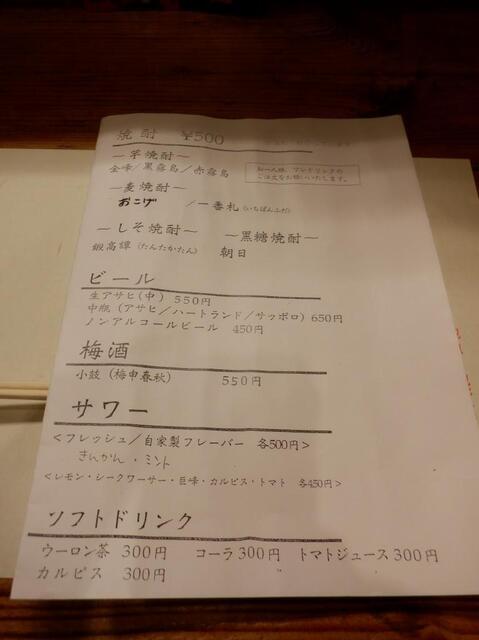 焼酎 ¥500
―芋焼酎―
金峰/黒霧島/赤霧島
お一人様、ワンドリンクの
ご注文をお願いいたします。
―麦焼酎―
おこげ /一番札(いちばんふだ)
―しそ焼酎― ―黒糖焼酎―
鍛高譚(たんたかたん) 朝日
ビール
生アサヒ(中) 550円
中瓶(アサヒ/ハートランド/サッポロ)650円
ノンアルコールビール 450円
梅酒
小鼓(梅申春秋) 550円
サワー
<フレッシュ/自家製フレーバー 各500円>
きんかん・ミント
<レモン・シークワーサー・巨峰・カルピス・トマト 各450円>
ソフトドリンク
ウーロン茶 300円 コーラ300円 トマトジュース300円
カルピス 300円